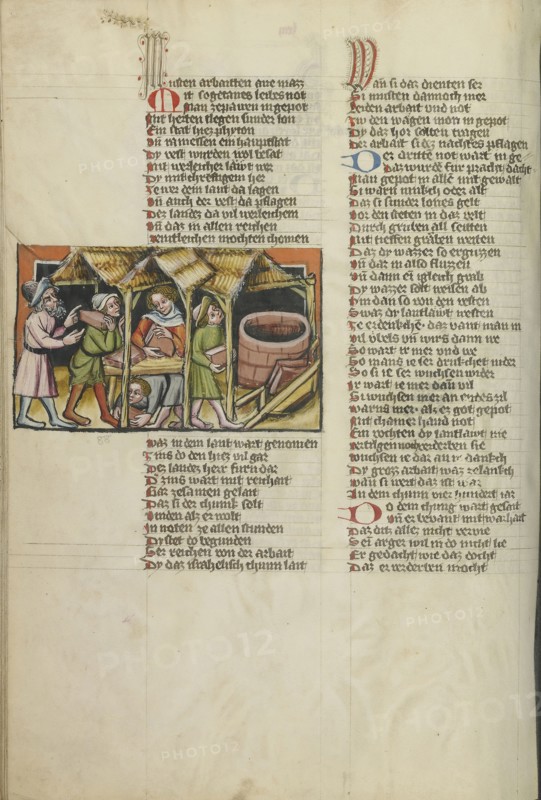 Musten arbaitten one mazz
Mit sogetanes leibes not
Man ze pawen in gepot
Mit herten slegen sunder lon
Ein stat hiez phyton
Vn ramessen ein hauptstat
Dy vest wurden wol besat
Mit werleicher lawt wer
Dy
Ze wer dem lant da lagen
Vn auch der vest da pflagen
Dez landez da vil werleichen
Vn daz in allen reichen
mochten chomen
waz in dem lant wart genomen
Zins do den hiez vil gar
Dez landez herr furn dar
D zins wart mit reichait
Gar zesamen gelait
Daz si der chunk solt
Vinden alz er wolt
In noten ze allen stunden
Dy stet do begunden
Ser reichen von der arbait
Dy daz israhelisch chunn lait
Wan si daz dienten ser
Si musten dannoch mer
Leiden arbait vnd not
In den wagen man in gepot
Dy daz hor solten tragen
Der arbait si dez nachtes pflagen
Der dritte not wart in ge
Daz wurde fur pracht
Man gepot in alle mit gewalt
Si warn iunk oder alt
Daz si sunder lones gelt
Vor den steten in daz velt
Durch gruben all seitten
Mit tieffen graben weiten
Daz dy wazzer so erguzzen
Vn dar in also fluzzen
Vn dann ein igleich grab
Dy wazzer solt weisen ab
Hin dan so von den vesten
Swaz der lantlawt westen
Ze erdenchen daz vant man in
Vil vbels vn wirs dann we
So wart ir mer vnd we
So mans ie ser druchet nider
So si ie ser wuchsen wider
Ir wart ie mer dan vil
Si wuchsen mer an endes zil
Warn mer alz er got gepot
Mit chainer hand not
Ein mochten dy lantlawt nie
Vertilgen noch verderben sie
Wuchsen ie dar an ir danksch
Dy groz arbait waz ze lanksch
Wan si wert daz ist war
In dem chunn vier hundert iar
Do dem chunig wart gesait
Vn er bevant mit warhait
Daz ditz allez nicht vervie
Sein arger wil in do nicht lie
Er gedacht wie daz tocht
Daz er verderben mocht
88
PHOTO12